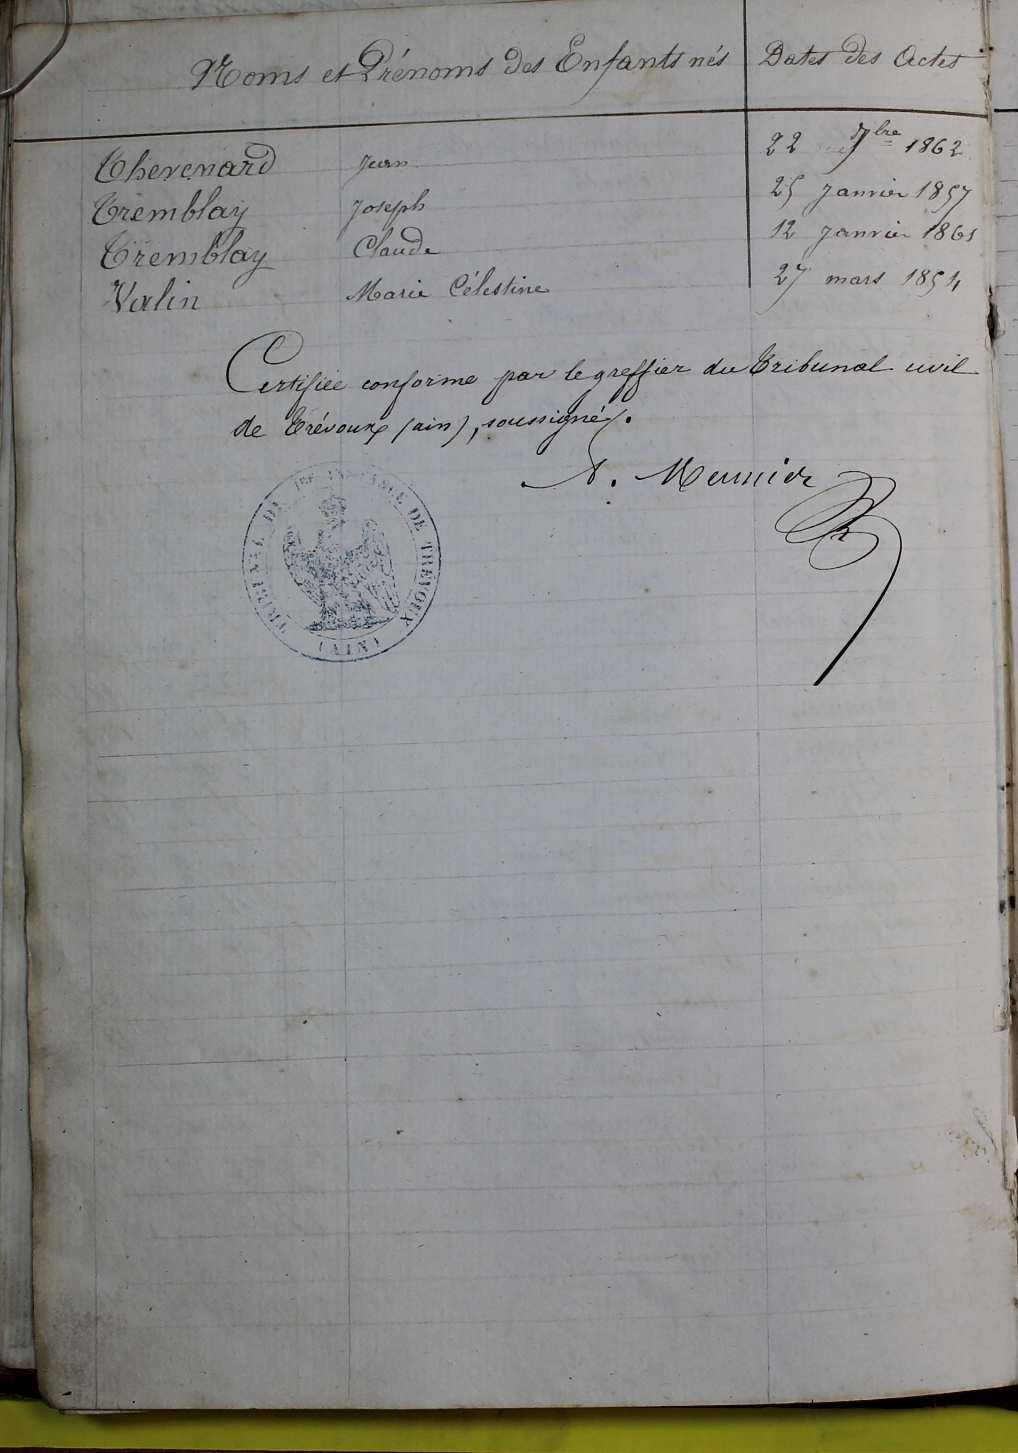 Noms et Prénoms des Enfants nés Dates des Actes
Thevenard Jean 22 7bre 1862
Tremblay Joseph 25 Janvier 1857
Tremblay Claude 12 Janvier 1861
Valin Marie Célestine 27 mars 1854
Certifiée conforme par le greffier du Tribunal civil
de Trévoux (ain), soussigné.
A. Meunier
TRIBUNAL DE 1RE INSTANCE DE TRÉVOUX
(AIN)